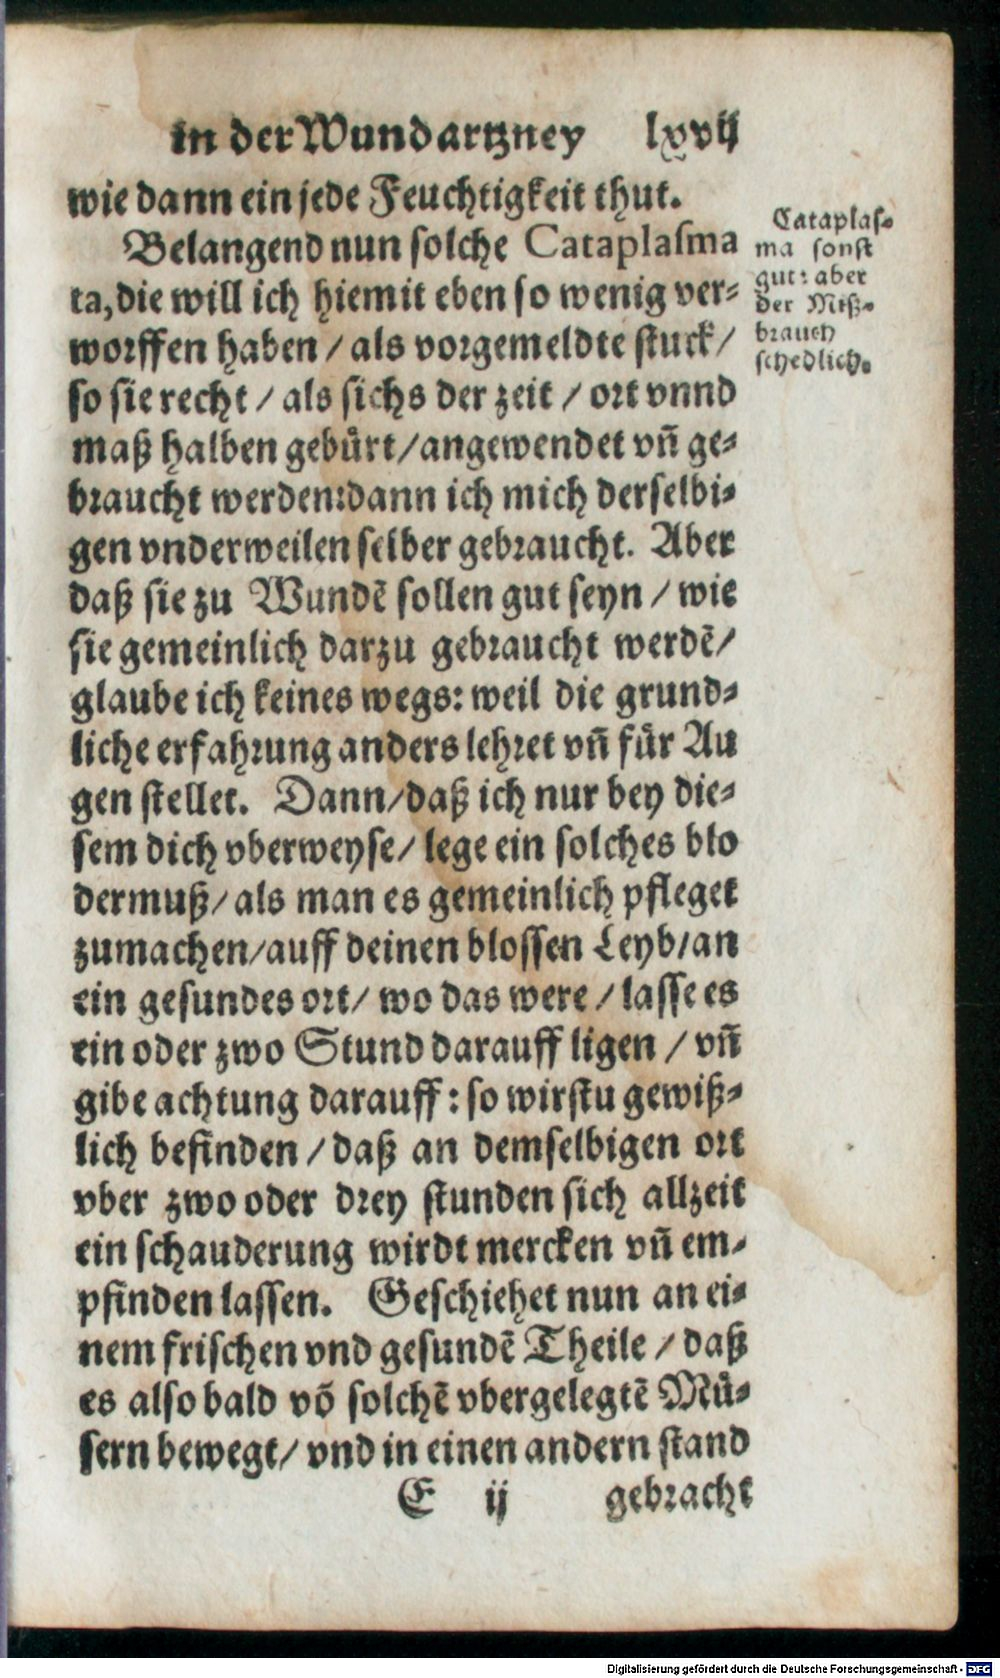 in der Wundartzney lxvij
wie dann ein jede Feuchtigkeit thut.
Belangend nun solche Cataplasma
ta, die will ich hiemit eben so wenig ver⸗
worffen haben / als vorgemeldte stuck /
so sie recht / als sichs der zeit / ort vnnd
maß halben gebuͤrt / angewendet vñ ge⸗
braucht werden: dann ich mich derselbi⸗
gen vnderweilen selber gebraucht. Aber
daß sie zu Wundẽ sollen gut seyn / wie
sie gemeinlich darzu gebraucht werdẽ /
glaube ich keines wegs: weil die grund⸗
liche erfahrung anders lehret vñ fuͤr Au
gen stellet. Dann / daß ich nur bey die⸗
sem dich vberweyse / lege ein solches blo
dermuß / als man es gemeinlich pfleget
zumachen / auff deinen blossen Leyb / an
ein gesundes ort / wo das were / lasse es
ein oder zwo Stund darauff ligen / vñ
gibe achtung darauff: so wirstu gewiß⸗
lich befinden / daß an demselbigen ort
vber zwo oder drey stunden sich allzeit
ein schauderung wirdt mercken vñ em⸗
pfinden lassen. Geschiehet nun an ei⸗
nem frischen vnd gesundẽ Theile / daß
es also bald võ solchẽ vbergelegtẽ Muͤ⸗
sern bewegt / vnd in einen andern stand
E ij gebracht
Cataplas⸗
ma sonst
gut: aber
der Miß⸗
brauch
schedlich.
Digitalisierung gefördert durch die Deutsche Forschungsgemeinschaft - DFG